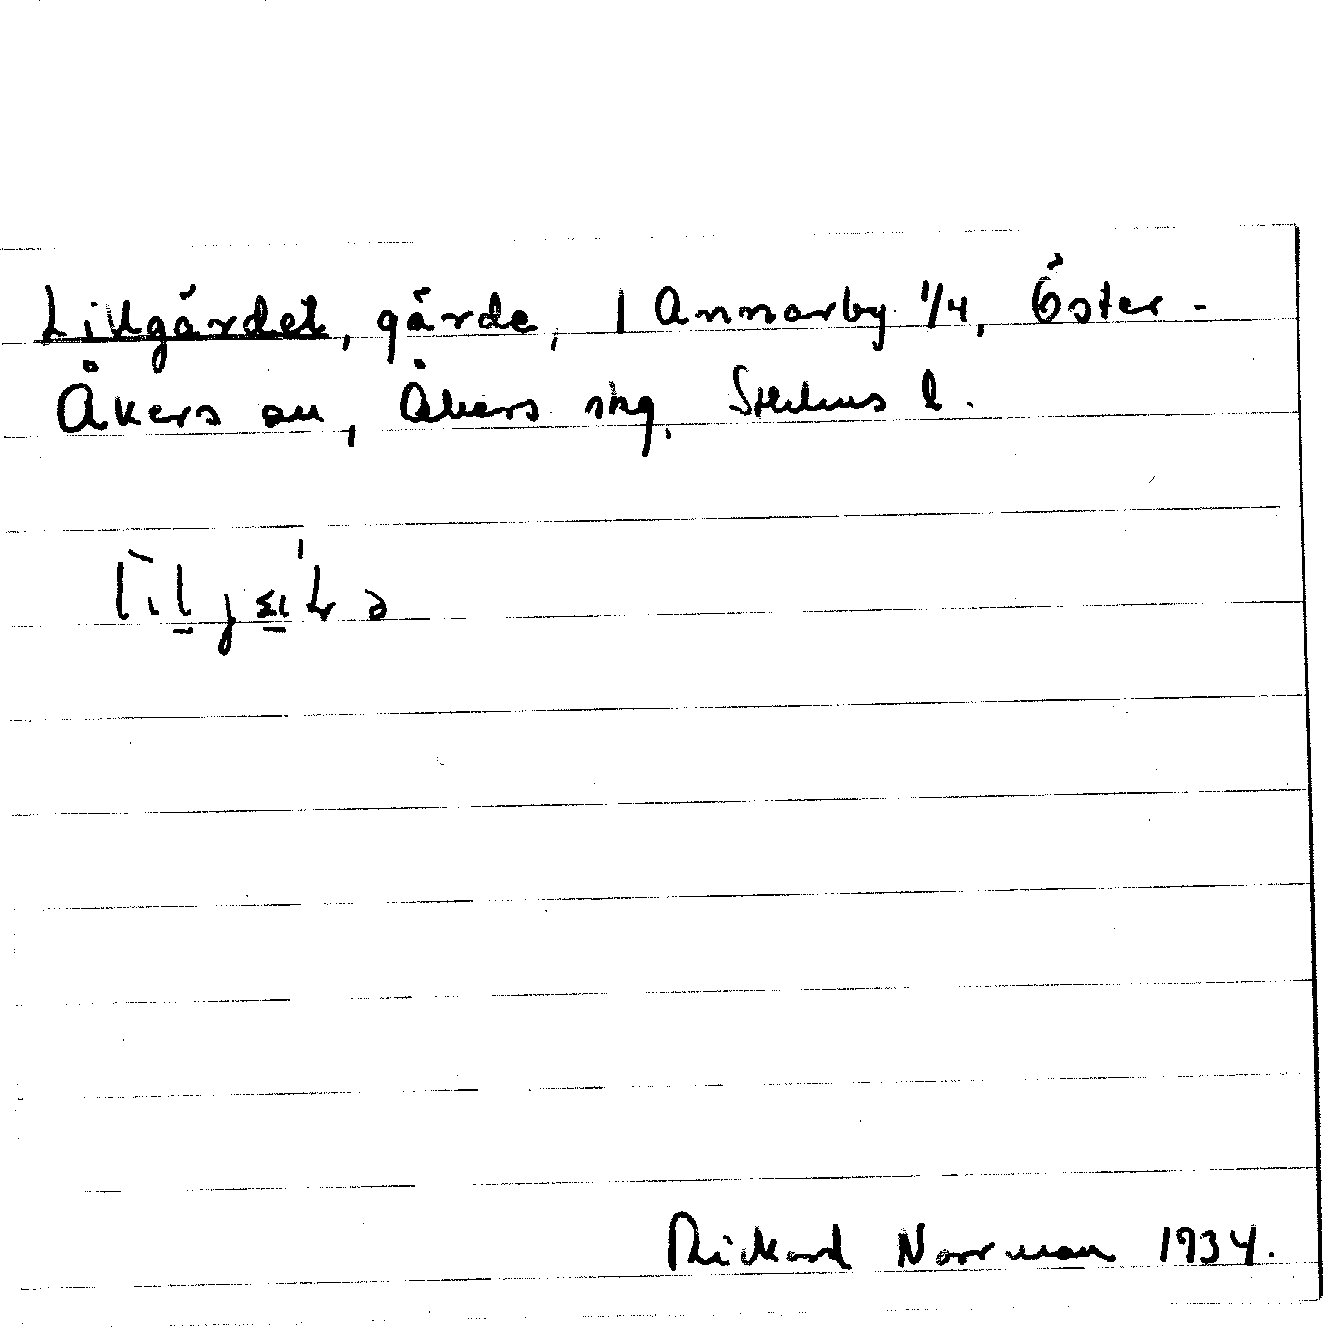 Lillgärdet, gärde, i Annarby 1/4, Öster-
Åkers sn, Åkers skg, Sthlms l.
Rickard Norrman 1934.